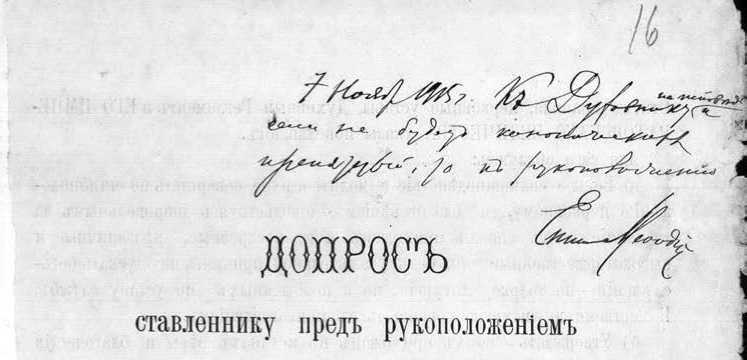 16
7 Ноября 1915 г. Къ Духовнику на исповѣдь и
если не будетъ каноническихъ
препятствій, то къ рукоположенію
Епископъ Меѳодій
ДОПРОСЪ
ставленнику предъ рукоположеніемъ